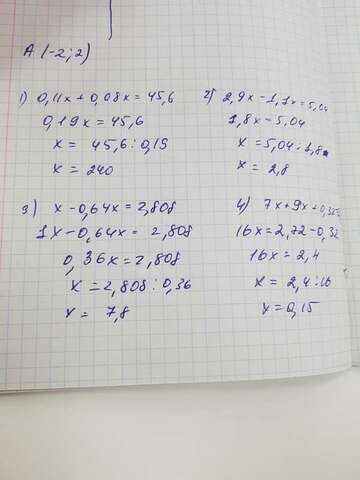 A. (-2; 2)
1) 0,11x + 0,08x = 45,6
0,19x = 45,6
x = 45,6 : 0,19
x = 240
2) 2,9x - 1,1x = 5,04
1,8x = 5,04
x = 5,04 : 1,8
x = 2,8
3) x - 0,64x = 2,808
1x - 0,64x = 2,808
0,36x = 2,808
x = 2,808 : 0,36
x = 7,8
4) 7x + 9x + 0,32=
16x = 2,72 - 0,32
16x = 2,4
x = 2,4 : 16
x = 0,15